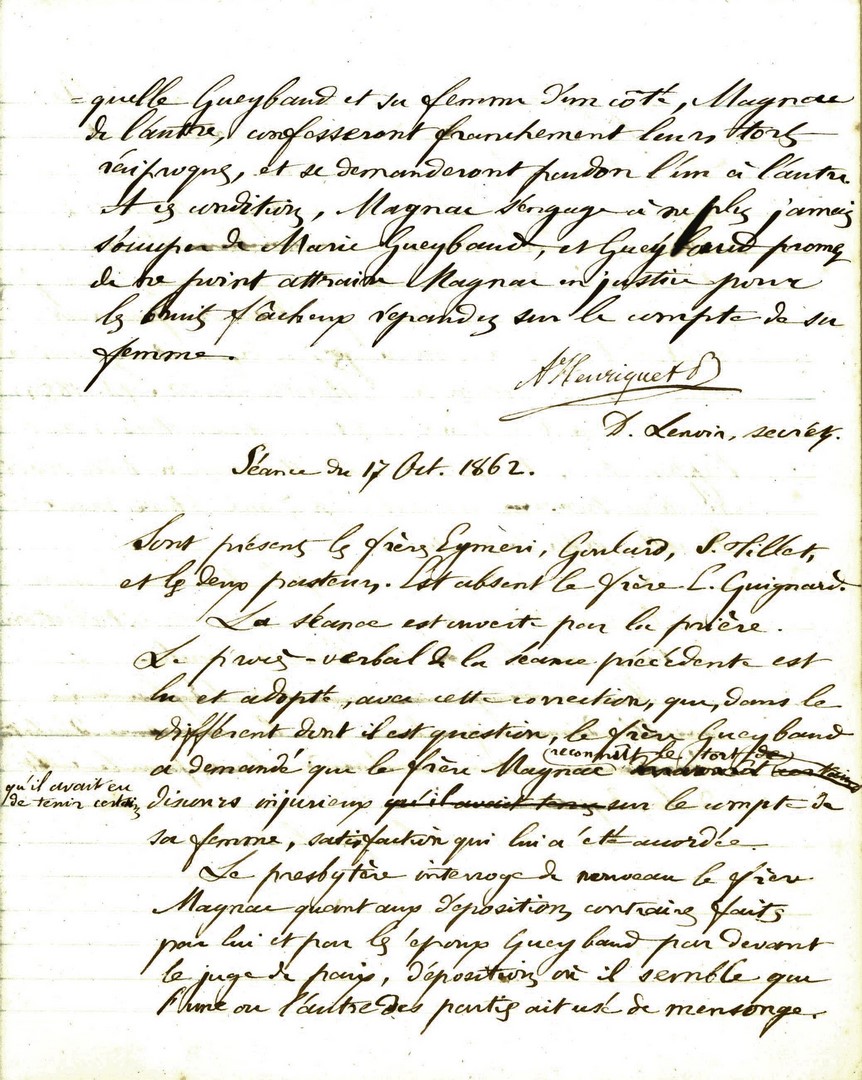 =quelle Gueybaud et sa femme d'un côté, Magnac
de l'autre, confesseront franchement leurs torts
réciproques, et se demanderont pardon l'un à l'autre.
A ces conditions, Magnac s'engage à ne plus jamais
s'occuper de Marie Gueybaud, et Gueybaud promet
de ne point attraire Magnac en justice pour
les bruits fâcheux répandus sur le compte de sa
femme.
A. Henriquet
D. Lenoir, secrét.
Séance du 17 Oct. 1862.
Sont présents les frères Eymèri, Goulard, S. Tillet,
et les deux pasteurs. Est absent le frère L. Guignard.
La séance est ouverte par la prière.
Le procès-verbal de la séance précédente est
lu et adopté, avec cette correction, que, dans le
différent dont il est question, le frère Gueybaud
reconnût le tort de
a demandé que le frère Magnac
qu'il avait eu
de tenir certains
discours injurieux qu'il avait tenus sur le compte de
sa femme, satisfaction qui lui a été accordée.
Le presbytère interroge de nouveau le frère
Magnac quant aux dépositions contraires faites
par lui et par les époux Gueybaud par devant
le juge de paix, dépositions où il semble que
l'une ou l'autre des parties ait usé de mensonge.